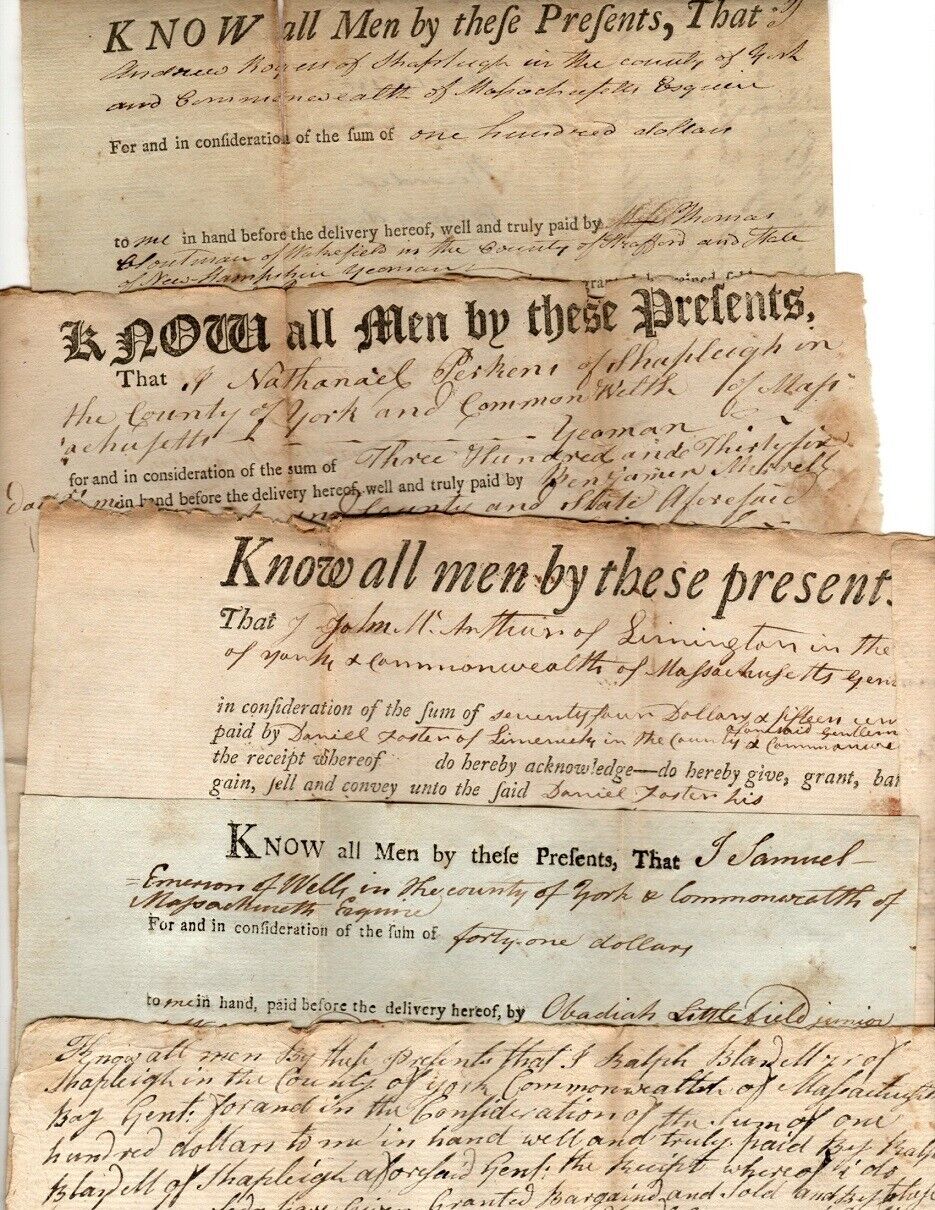 KNOW all Men by theſe Preſents, That I
Andrew Rogers of Shapleigh in the county of York
and Commonwealth of Massachusetts Esquire
For and in conſideration of the ſum of one hundred dollars
to me in hand before the delivery hereof, well and truly paid by Thomas
Cloutman of Wakefield in the County of Strafford and State
of New Hampshire Yeoman
KNOW all Men by theſe Preſents,
That I Nathanael Perkens of Shapleigh in
the County of York and Common Welth of Mass
achusetts Yeoman
for and in conſideration of the ſum of Three Hundred and Thirty six
me in hand before the delivery hereof, well and truly paid by Benjamin
and County and State Aforesaid
Know all men by theſe preſent
That I John Mc Arthur of Limington in the
of York & Commonwealth of Massachusetts Gen
in conſideration of the ſum of seventy four Dollars & fifteen cen
paid by Daniel Foster of Limerick in the County & Commonwe
aforesaid Gentlem
the receipt whereof do hereby acknowledge—do hereby give, grant, bar
gain, ſell and convey unto the ſaid Daniel Foster his
KNOW all Men by theſe Preſents, That I Samuel
Emerson of Wells in the county of York & Commonwealth of
Massachusetts Esquire
For and in conſideration of the ſum of forty-one dollars
to me in hand, paid before the delivery hereof, by Obadiah Littlefield junior
Know all men By these Presents that I Ralph Blaisdell of
Shapleigh in the County of York Commonwealth of Massachusetts
Bay Gent: for and in the Consideration of the sum of one
hundred dollars to me in hand well and truly paid By Ralph
Blaisdell of Shapleigh aforesaid Gent: the Receipt whereof I do
have Given Granted Bargaind and Sold and By these